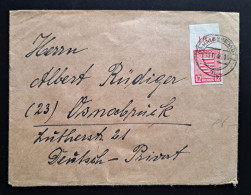 Herrn
Albert Rüdiger
(23) Osnabrück
Lutherstr. 21
Deutsch - Privat
12